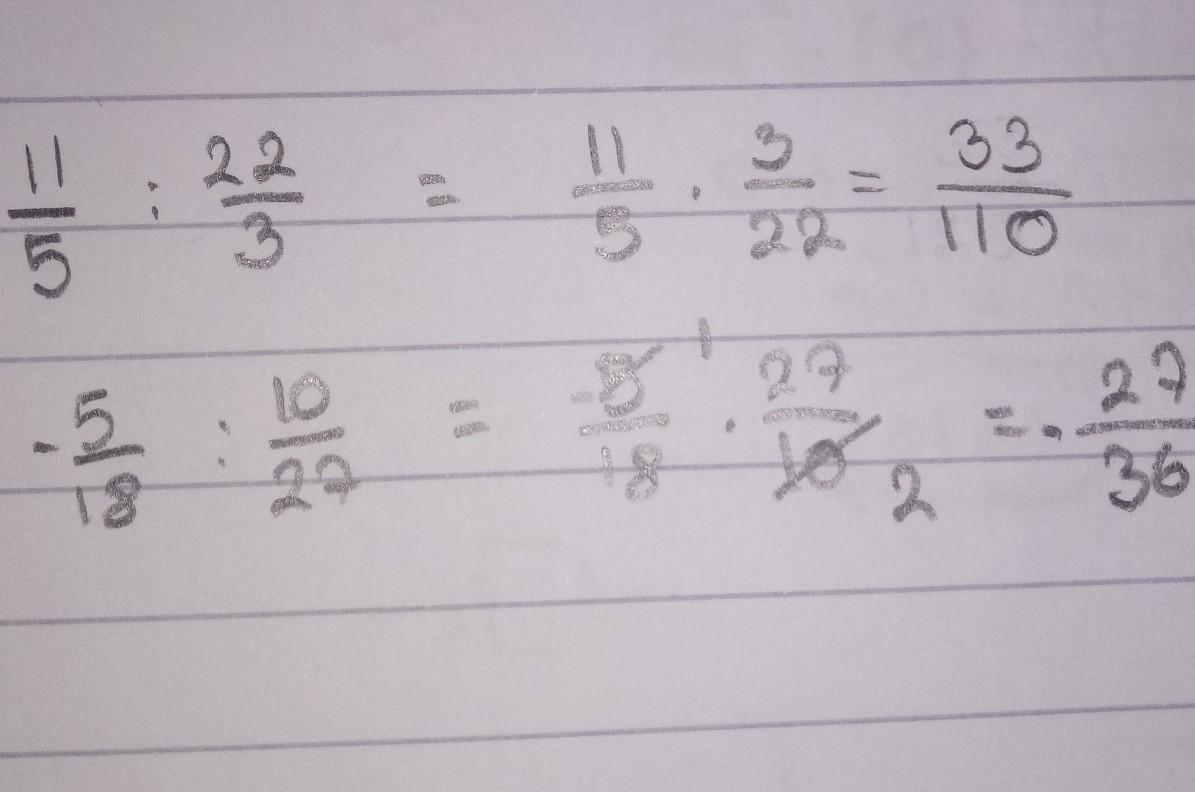 11/5 : 22/3 = 11/5 · 3/22 = 33/110
-5/18 : 10/27 = -5/18 1 · 27/10 2 = -27/36